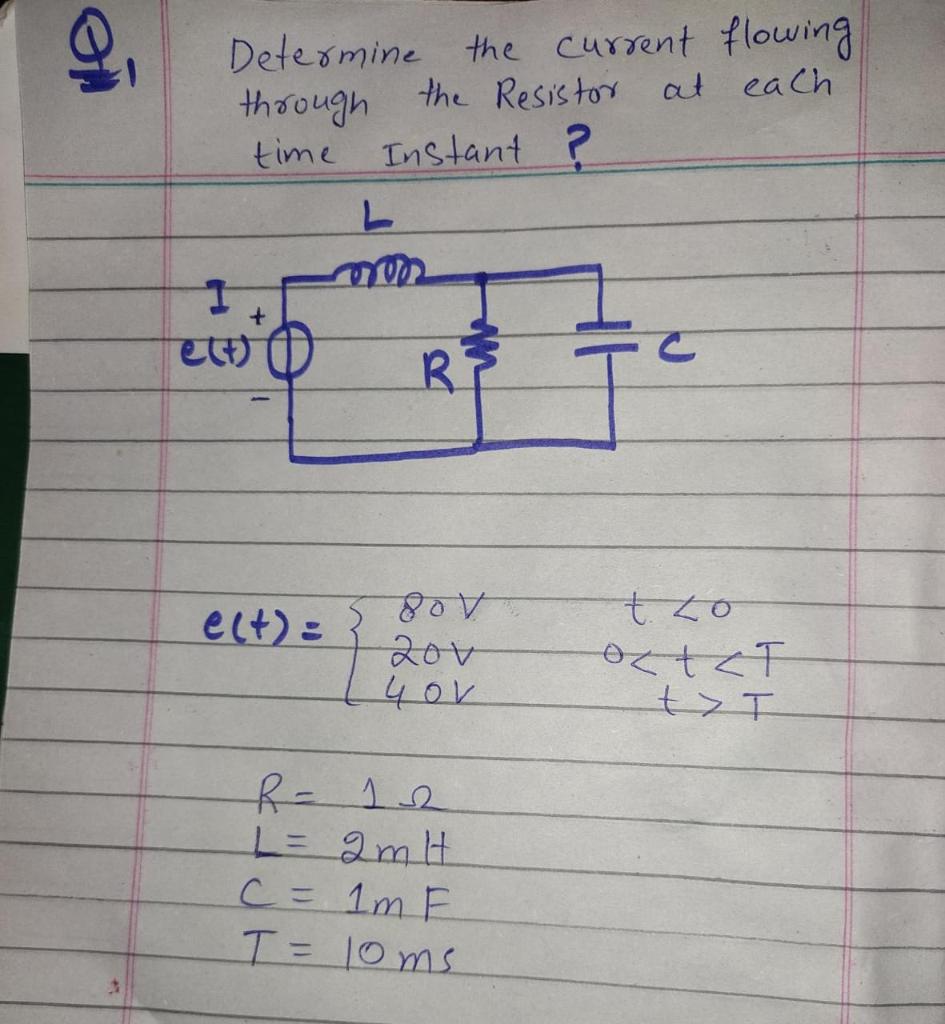 Q1
Determine the current flowing
through the Resistor at each
time Instant ?
L
I
+
e(t)
R
C
-
e(t) = { 80V t<0
20V 0<t<T
40V t>T
R = 1Ω
L = 2mH
C = 1mF
T = 10ms